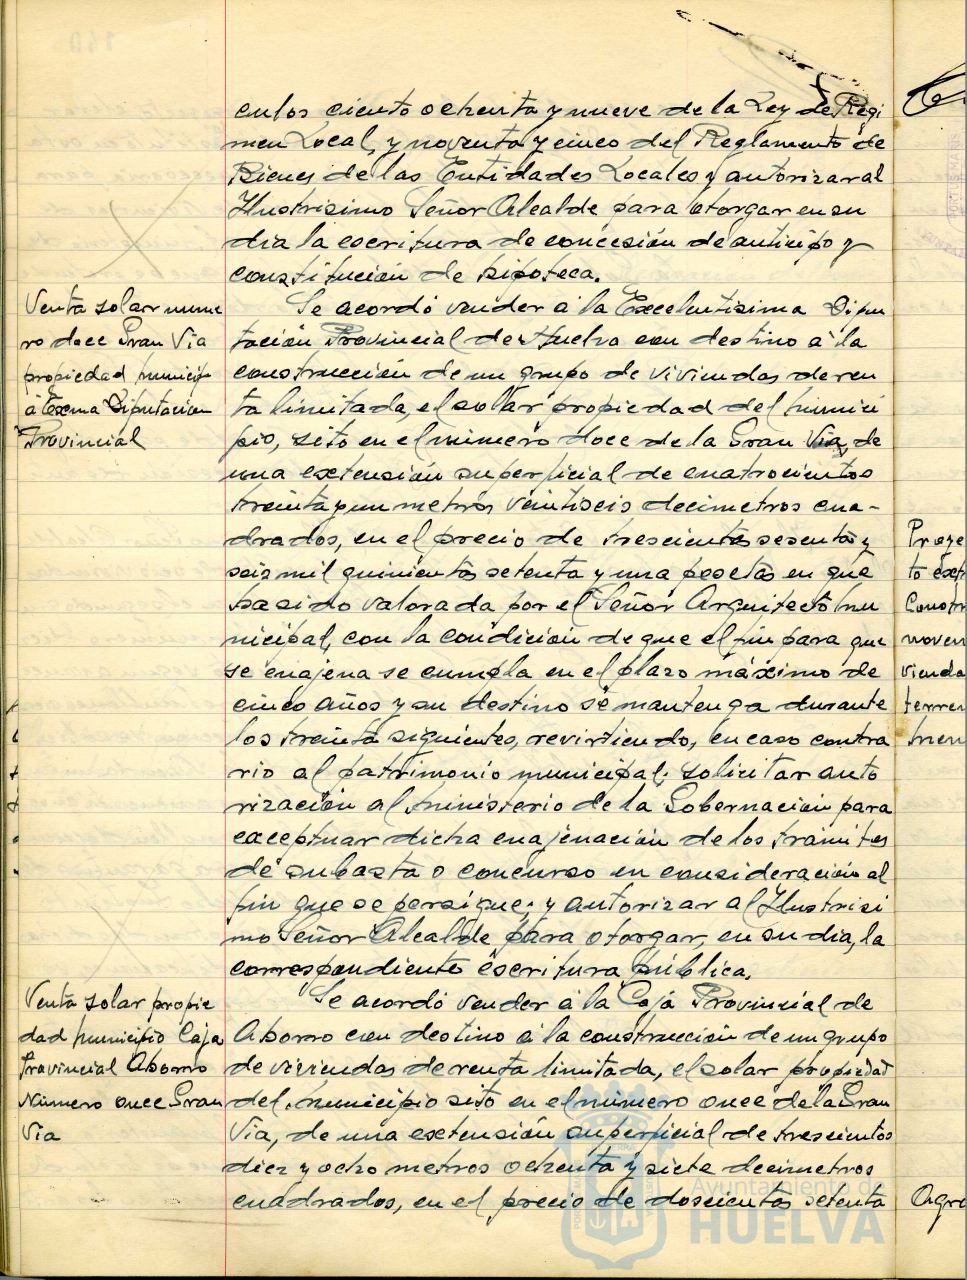 culos ciento ochenta y nueve de la Ley de Regi
men Local, y noventa y cinco del Reglamento de
Bienes de las Entidades Locales y autorizar al
Ilustrisimo Señor Alcalde para otorgar en su
dia la escritura de concesión de anticipo y
constitución de hipoteca.
Venta solar nume
ro doce Gran Via
propiedad municip
á Excma Diputación
Provincial
Se acordó vender á la Excelentisima Dipu
tación Provincial de Huelva con destino á la
construcción de un grupo de viviendas de ren
ta limitada, el solar propiedad del munici
pio, sito en el número doce de la Gran Via, de
una extensión superficial de cuatrocientos
treinta y un metros veintiseis decimetros cua-
drados, en el precio de trescientas sesenta y
seis mil quinientas setenta y una pesetas en que
ha sido valorada por el Señor Arquitecto mu
nicipal, con la condición de que el fin para que
se enajena se cumpla en el plazo máximo de
cinco años y su destino se mantenga durante
los treinta siguientes, revirtiendo, en caso contra
rio al patrimonio municipal; solicitar auto
rización al ministerio de la Gobernación para
exceptuar dicha enajenación de los trámites
de subasta o concurso en consideración al
fin que se persigue; y autorizar al Ilustrisi
mo Señor Alcalde para otorgar, en su dia, la
correspondiente escritura pública.
Venta solar propie
dad municipio Caja
Provincial Ahorro
Número once Gran
Via
Se acordó vender á la Caja Provincial de
Ahorro con destino á la construcción de un grupo
de viviendas de renta limitada, el solar propiedad
del municipio sito en el número once de la Gran
Via, de una extensión superficial de trescientos
diez y ocho metros ochenta y siete decimetros
cuadrados, en el precio de doscientas setenta
Proye
to exp
Constr
noven
vienda
terren
Ayuntamiento de
HUELVA